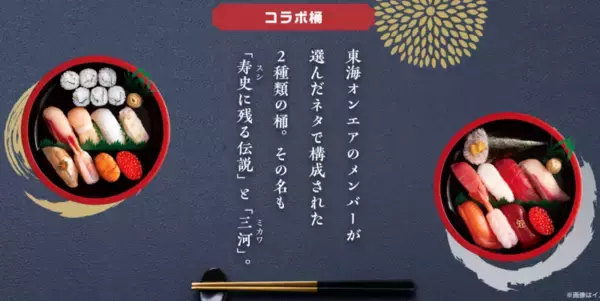 コラボ桶
東海オンエアのメンバーが
選んだネタで構成された
2種類の桶。その名も
「寿史に残る伝説」と「三河」。
スシ
ミカワ
※画像はイ